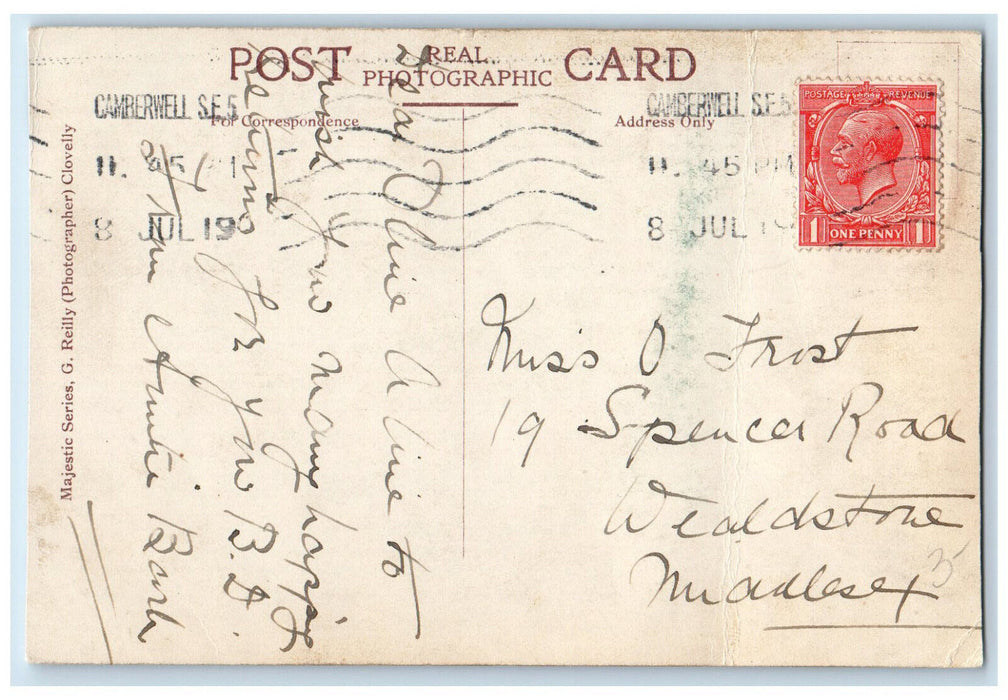 POST REAL PHOTOGRAPHIC CARD
For Correspondence
Address Only
CAMBERWELL S.E.5
11. 45 PM
8 JUL 19
CAMBERWELL S.E.5
11. 45 PM
8 JUL 19
POSTAGE REVENUE
1 ONE PENNY 1
Majestic Series, G. Reilly (Photographer) Clovelly
Dear Olive A line to
wish you many happy
returns for your B.D
from Auntie
Miss O Frost
19 Spencer Road
Wealdstone
Middlesex
3